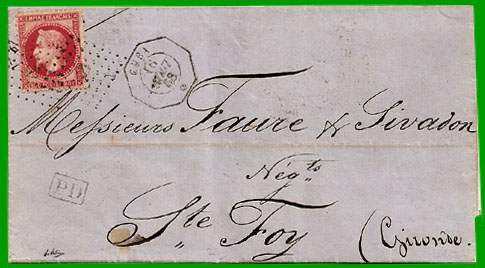 EMPIRE FRANÇAIS
Messieurs Faure & Sivadon
Nég.ts
PD
Ste Foy
(Gironde.